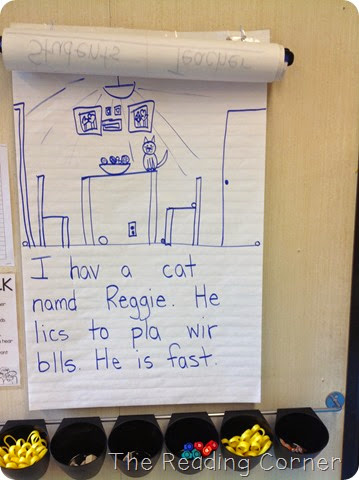 Students Teacher
I hav a cat
namd Reggie. He
lics to pla wir
blls. He is fast.
The Reading Corner